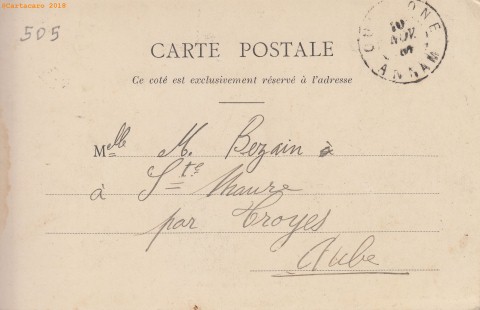 ©Cartacaro 2019
505
CARTE POSTALE
Ce coté est exclusivement réservé à l'adresse
10
NOV
ANNAM
Mlle M. Bezain
à Ste Maure
par Troyes
Aube